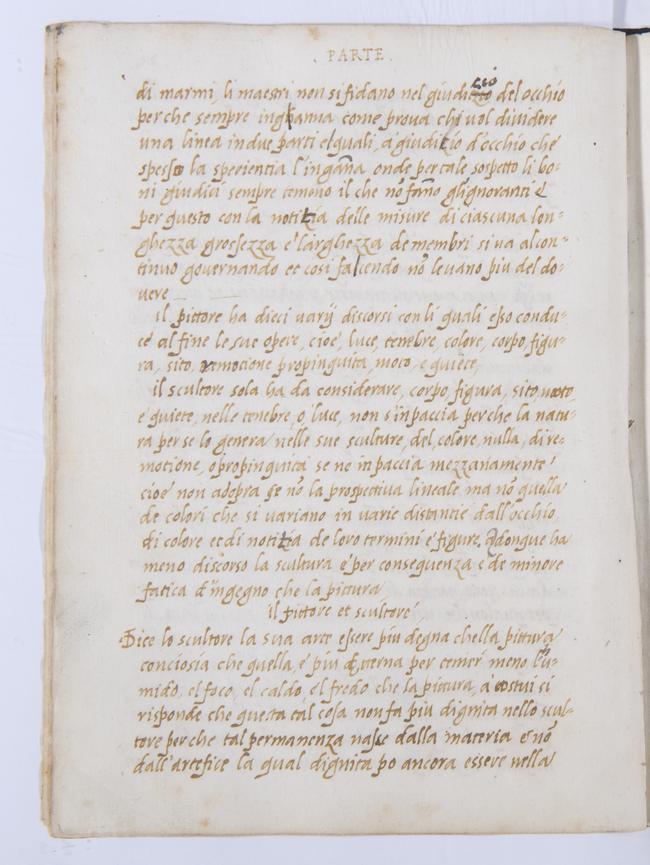 . PARTE .
di marmi, li maestri non si fidano nel giuditio cio del occhio
perche sempre inghanna come prova chi vol dividere
una linea in due parti e quali, a giuditio d'occhio che
spesso la sperientia l'ingana onde per tale sospetto li bo-
ni giudici sempre temono il che nō fanno gl'ignoranti &
per questo con la notitia delle misure di ciascuna lon-
ghezza grossezza e larghezza de membri si va al con-
tinuo governando et cosi facendo nō levano piu del do-
vere
il pittore ha dieci varij discorsi con li quali esso condu-
ce al fine le sue opere, cioe, luce, tenebre, colore, corpo, figu-
ra, sito, remotione propinquita, moto, e quiete,
il scultore solo ha da considerare, corpo, figura, sito, moto,
e quiete, nelle tenebre, o luce, non s'inpaccia perche la natu-
ra per se lo genera nelle sue sculture, del colore, nulla, di re-
motione, o propinquita se ne inpaccia mezzanamente
cioe non adopra se nō la prospectiva lineale ma nō quella
de colori che si variano in varie distantie dall'occhio
di colore et di notitia de loro termini e figure, Adonque ha
meno discorso la scultura e per conseguenza e de minore
fatica d'ingegno che la pittura
il pittore et scultore
Dice lo scultore la sua arte essere piu degna chella pittura
conciosia che quella, e piu eterna per temer meno l'u-
mido, el foco, el caldo, el fredo che la pittura, a costui si
risponde che questa tal cosa non fa piu dignita nello scul-
tore perche tal permanenza nasce dalla materia e nō
dall'artefice la qual dignita po ancora essere nella